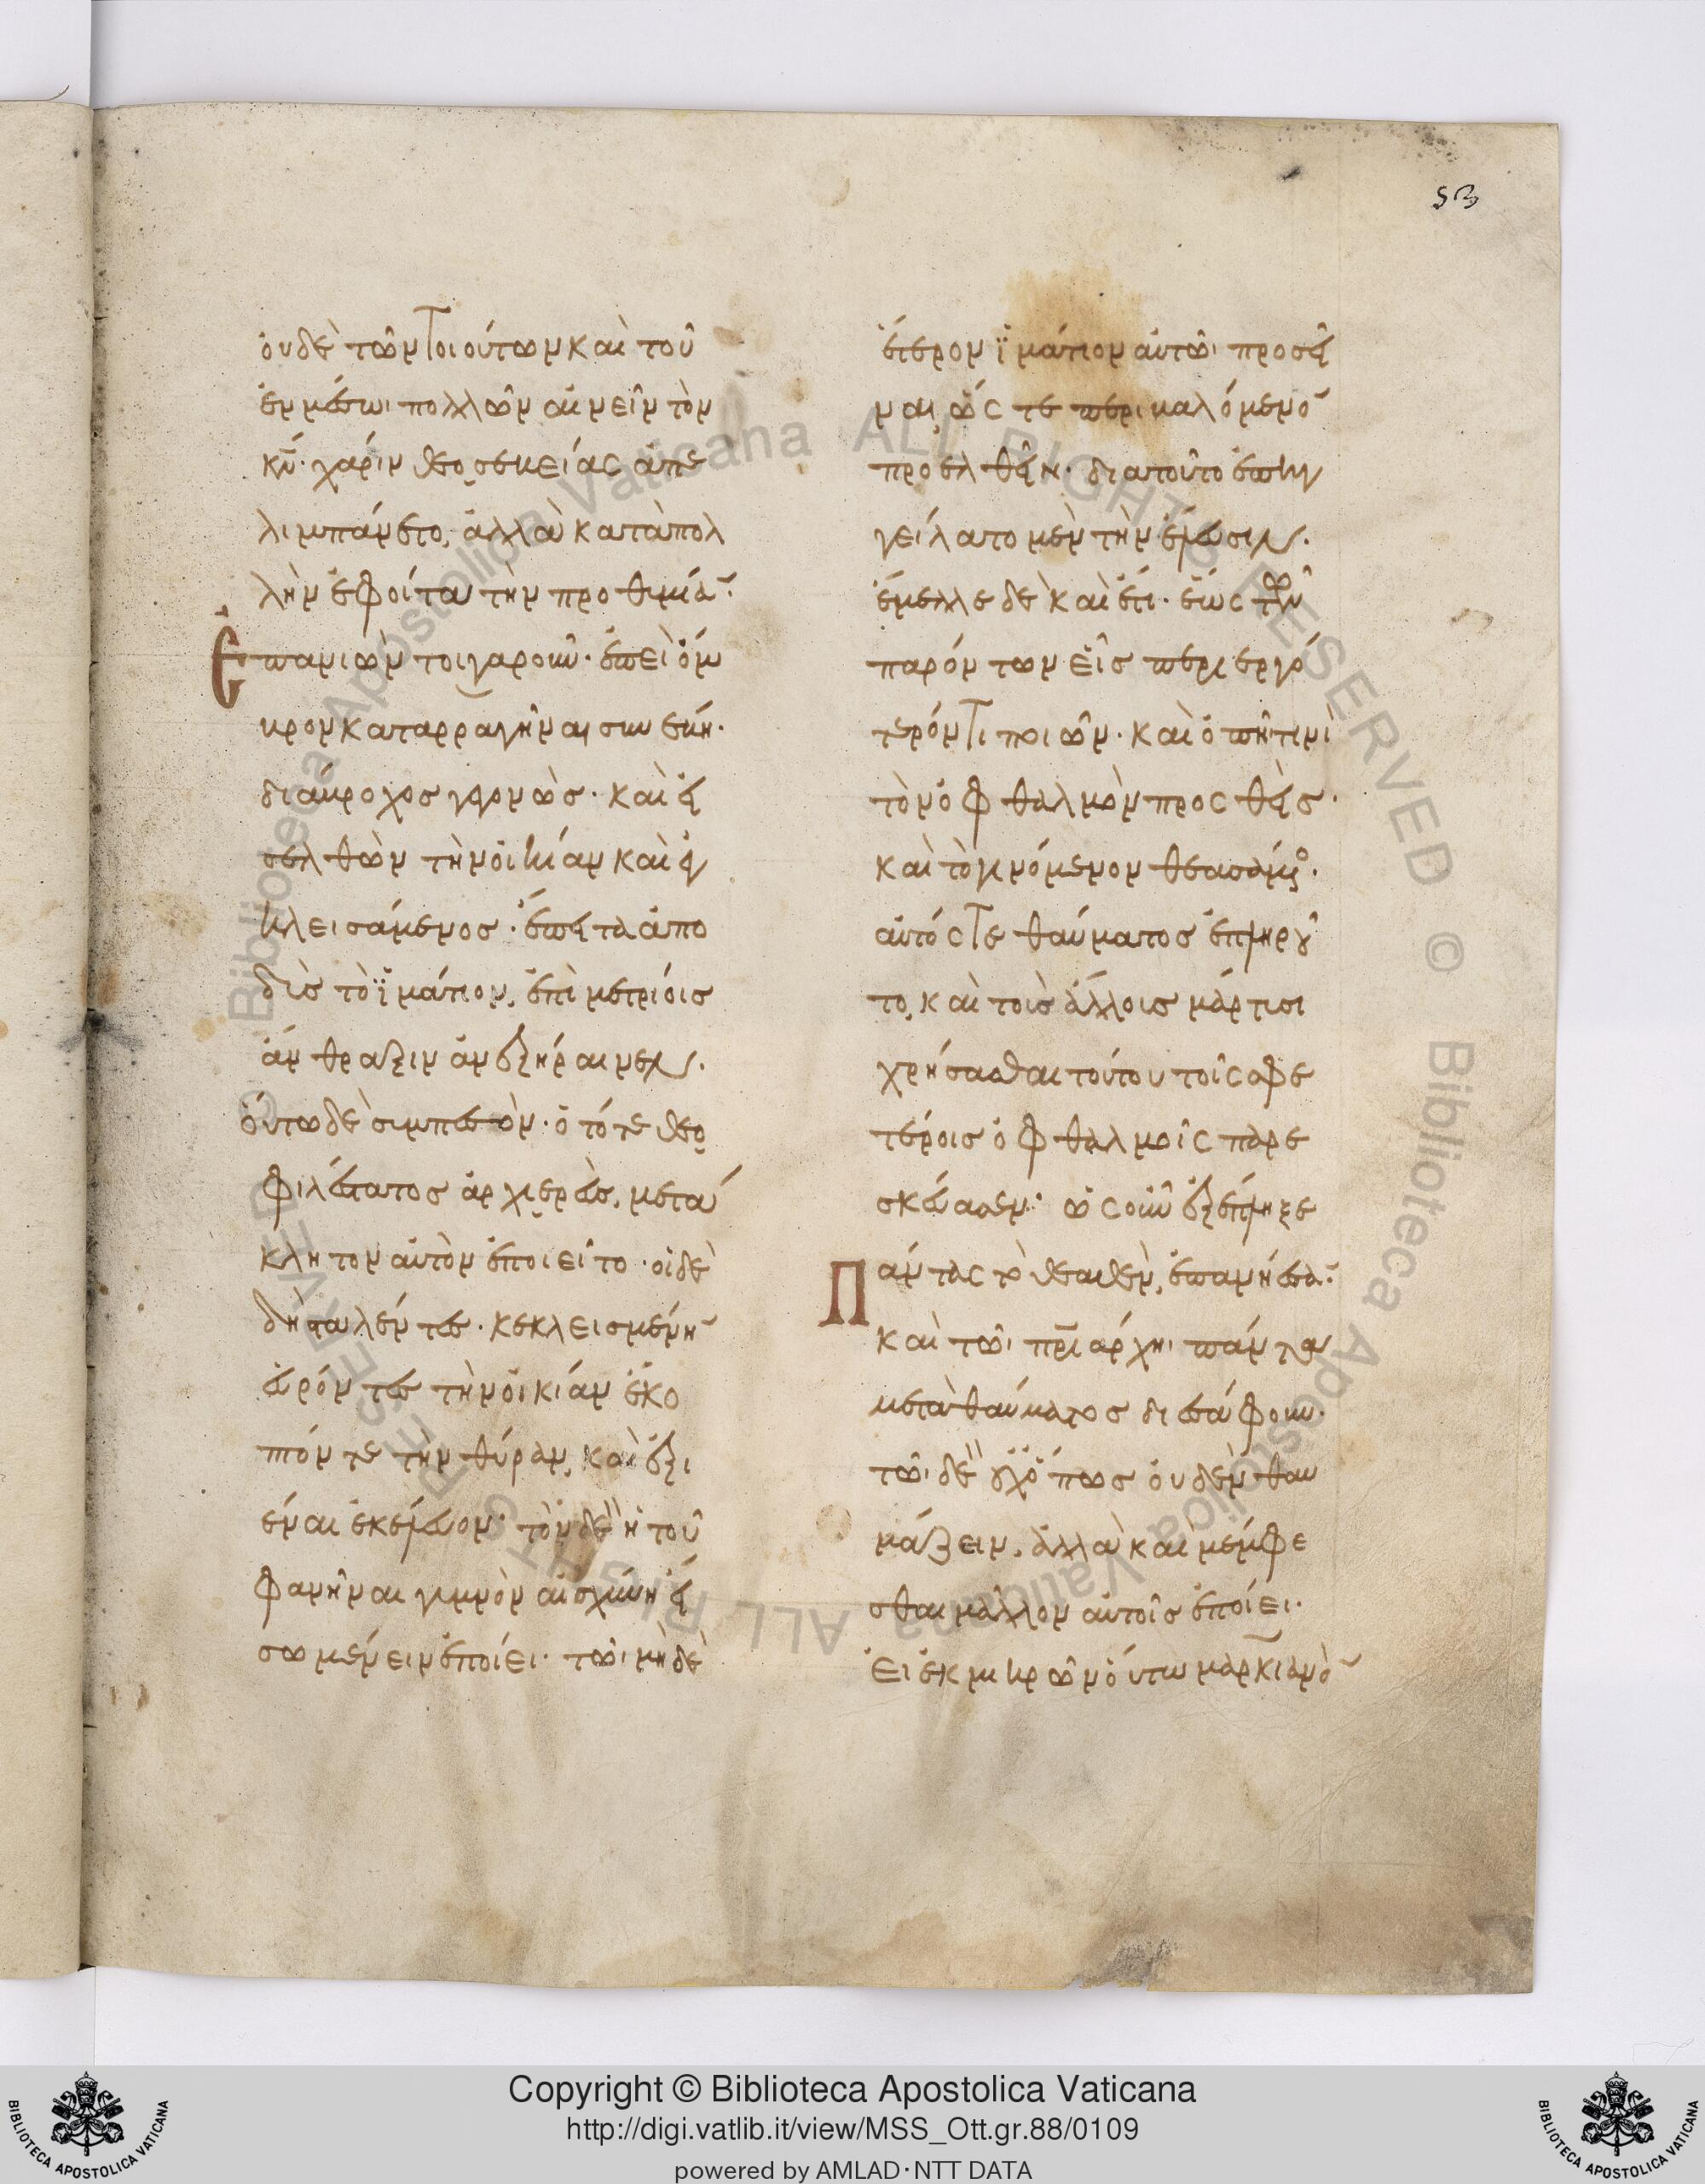 53
οὐδὲ τῶν τοιούτων καὶ τοῦ
ἐν μέσωι πολλῶν αἰνεῖν τὸν
κν̄· χάριν θεοσεκείας ἀπε
λιμπάνετο, ἀλλὰ κατὰ πολ
λὴν ἐφοίτα τὴν προθυμίᾱ·
Ἐπανιὼν τοιγαροῦν· ἐπεὶ ὄμ
κρον καταρραγῆναι συνέκη·
διάκροχος γεγονὼς· καὶ εἰ
σελθὼν τὴν οἰκίαν καὶ ἐγ
κλεισάμενος· ἔπειτα ἀπο
δὺς τὸ ϊμάτιον, ἐπὶ μετρίοις
ἄνθραξιν ἀνεξήραινεν·
οὕτω δὲ συμπεσὸν· ὁ τότε θεο
φιλέστατος ἀρχιερεὺς, μετά
κλητον αὐτὸν ἐποιεῖτο· οἱ δὲ
δὴ σταλέντες· κεκλεισμένη̄
εὑρόντες τὴν οἰκίαν ἔκο
πτόν τε τὴν θύραν, καὶ ἐξι
έναι ἐκέλευον· τὸν δὲ ἡ τοῦ
φανῆναι γυμνὸν αἰσχύνη εἴ
σω μένειν ἐποίει· τῶι μὴ δὲ
ἕτερον ϊμάτιον αὐτῶι προσεῖ
ναι, ὥς τε περικαλόμενο̄
προσελθεῖν· διατοῦτο ἐπηγ
γείλατο μὲν τὴν ἔλευσιν·
ἔμελλε δὲ καὶ ἔτι· ἕως τῶν
παρόντων εἷς περιεργό
τερόν τι ποιῶν· καὶ ὀπῆ τινὶ
τὸν ὀφθαλμὸν προσθεὶς·
καὶ τὸ γινόμενον θεασάμενος·
αὐτός τε θαύματος ἐπληροῦ
το, καὶ τοῖς ἄλλοις μάρτυσι
χρήσασθαι τούτου τοῖς σφε
τέροις ὀφθαλμοῖς παρε
σκεύασεν· ὡς οὖν ἐξέπληξε
Πάντας τὸ θεαθὲν, ἐπανήεσᾱ·
καὶ τῶι πρ̄ιάρχηι πάντα
μετὰ θαύματος διεσάφουν·
τῶι δὲ οὐχ ὅπως οὐδὲν θαυ
μάζειν, ἀλλὰ καὶ μέμφε
σθαι μᾶλλον αὐτοῖς ἐποίει·
εἰ ἐκ μικρῶν οὕτω μαρκιανὸ̄
Copyright © Biblioteca Apostolica Vaticana
http://digi.vatlib.it/view/MSS_Ott.gr.88/0109
powered by AMLAD·NTT DATA
BIBLIOTECA APOSTOLICA VATICANA
BIBLIOTECA APOSTOLICA VATICANA
© Biblioteca Apostolica Vaticana ALL RIGHTS RESERVED © Biblioteca Apostolica Vaticana ALL RIGHTS RESERVED